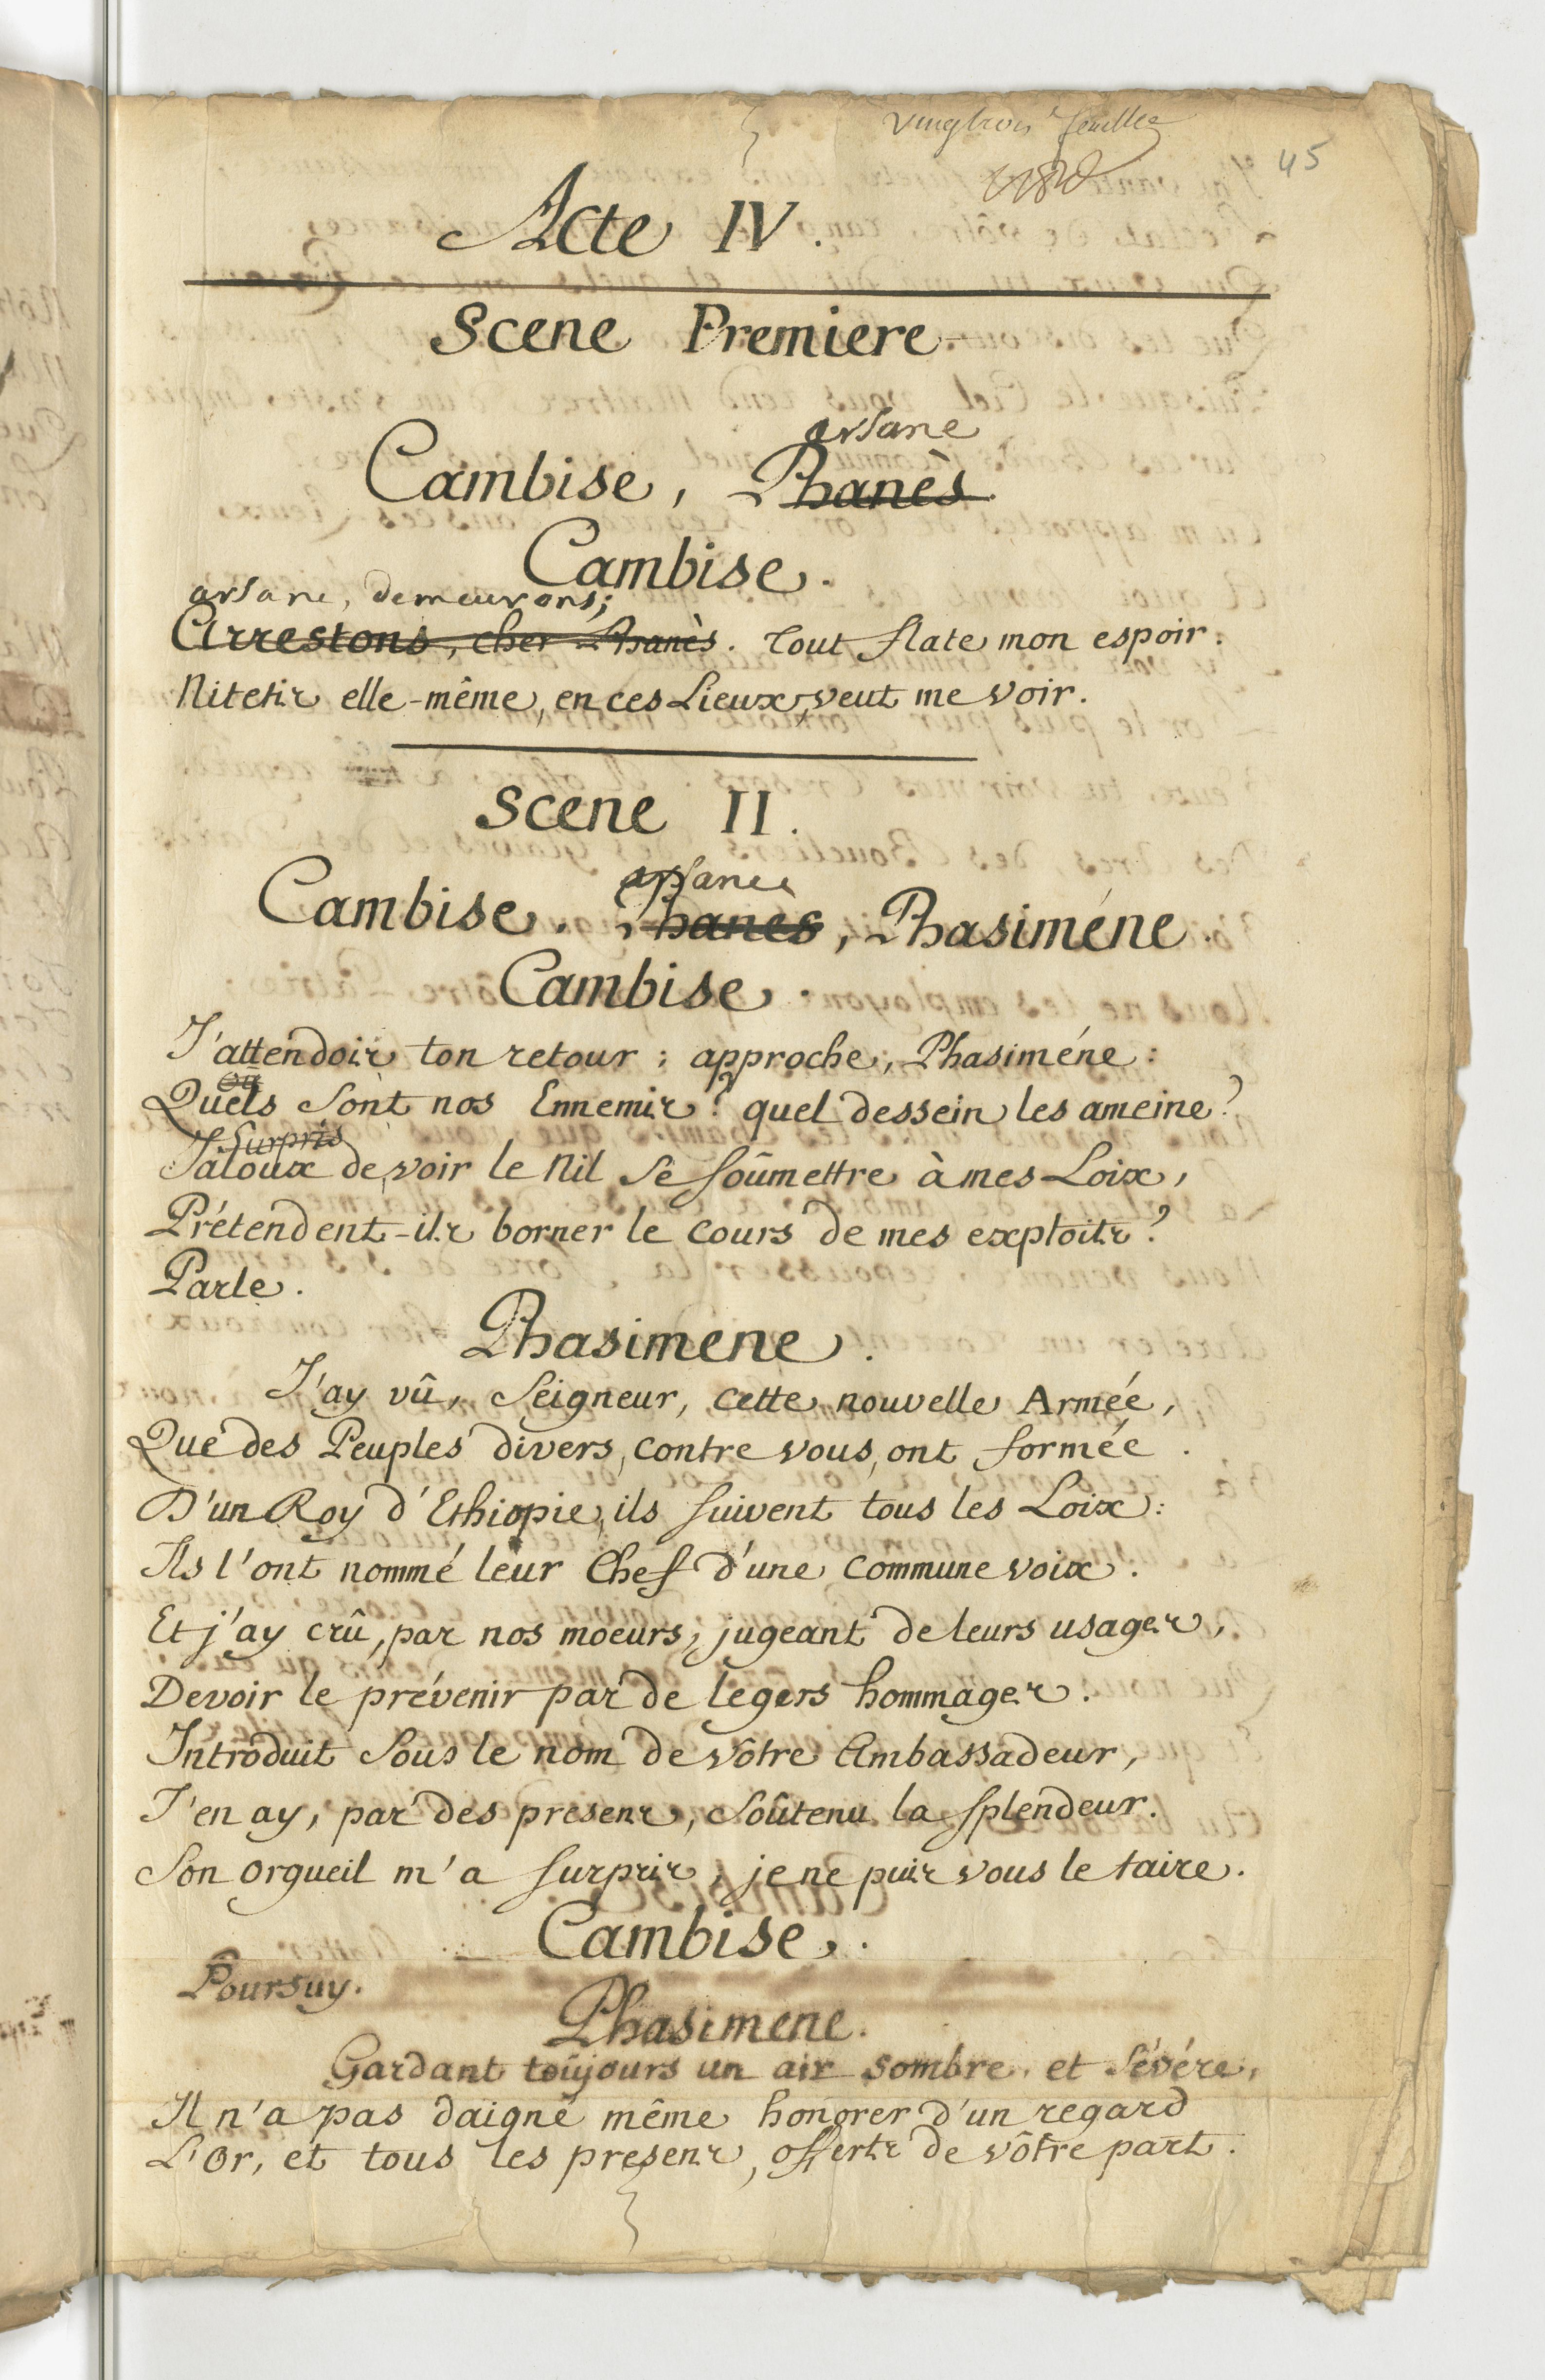 vingtrois feuillee
45
Acte IV.
Scene Premiere.
arsane
Cambise, Phanès.
Cambise.
arsane, demeurons;
Arrestons, cher Phanès. Tout flate mon espoir.
Nitetis elle-même, en ces Lieux, veut me voir.
Scene II.
arsane
Cambise. Phanès, Phasiméne.
Cambise.
J'attendois ton retour; approche, Phasiméne:
où
Quels sont nos Ennemis? quel dessein les ameine?
Surpris
Jaloux de voir le Nil se soûmettre à mes Loix,
Prétendent-ils borner le cours de mes exploits?
Parle.
Phasimene.
J'ay vû, Seigneur, cette nouvelle Armée,
Que des Peuples divers, contre vous, ont formée.
D'un Roy d'Ethiopie, ils suivent tous les Loix:
Ils l'ont nommé leur Chef d'une commune voix.
Et j'ay crû, par nos moeurs, jugeant de leurs usages,
Devoir le prévenir par de legers hommages.
Introduit sous le nom de vôtre Ambassadeur,
J'en ay, par des presens, soûtenu la splendeur.
Son orgueil m'a surpris, je ne puis vous le taire.
Cambise.
Poursuy.
Phasimene.
Gardant toûjours un air sombre, et sévére,
Il n'a pas daigné même honorer d'un regard
L'Or, et tous les presens, offerts de vôtre part.